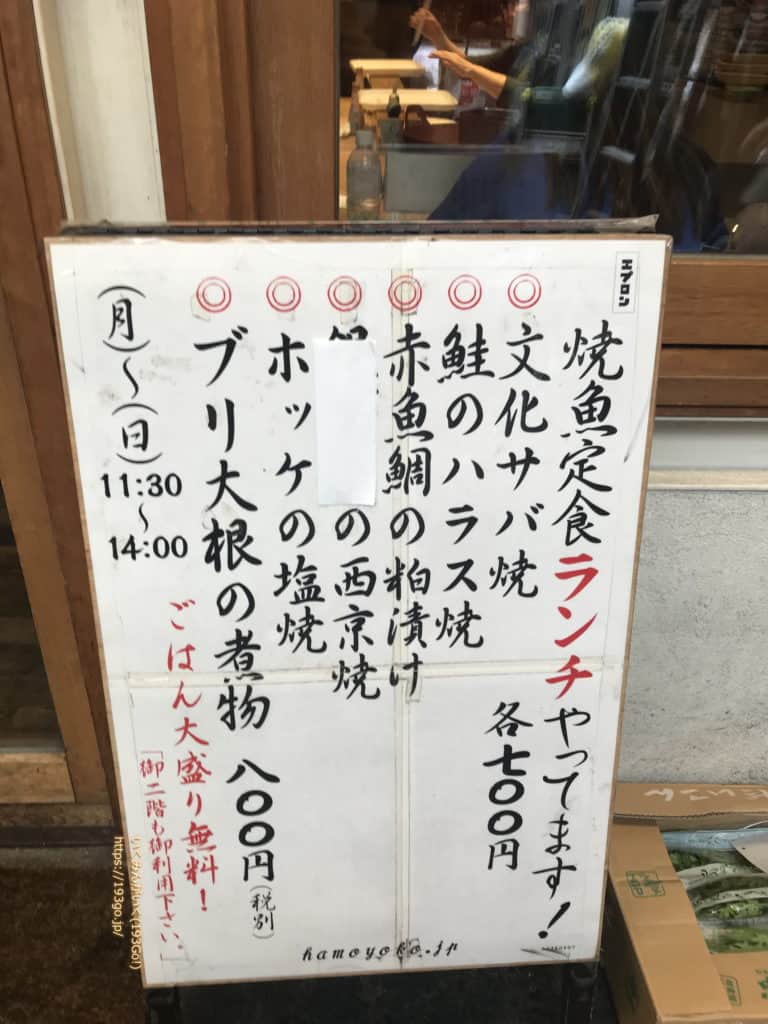 エプロン
焼魚定食ランチやってます!
◎文化サバ焼
各七〇〇円
◎鮭のハラス焼
◎赤魚鯛の粕漬け
◎の西京焼
◎ホッケの塩焼
◎ブリ大根の煮物 八〇〇円(税別)
ごはん大盛り無料!
「御二階も御利用下さい。」
(月)~(日)
11:30
~
14:00
hamoyoko.jp
(193GO!)
https://193go.jp/